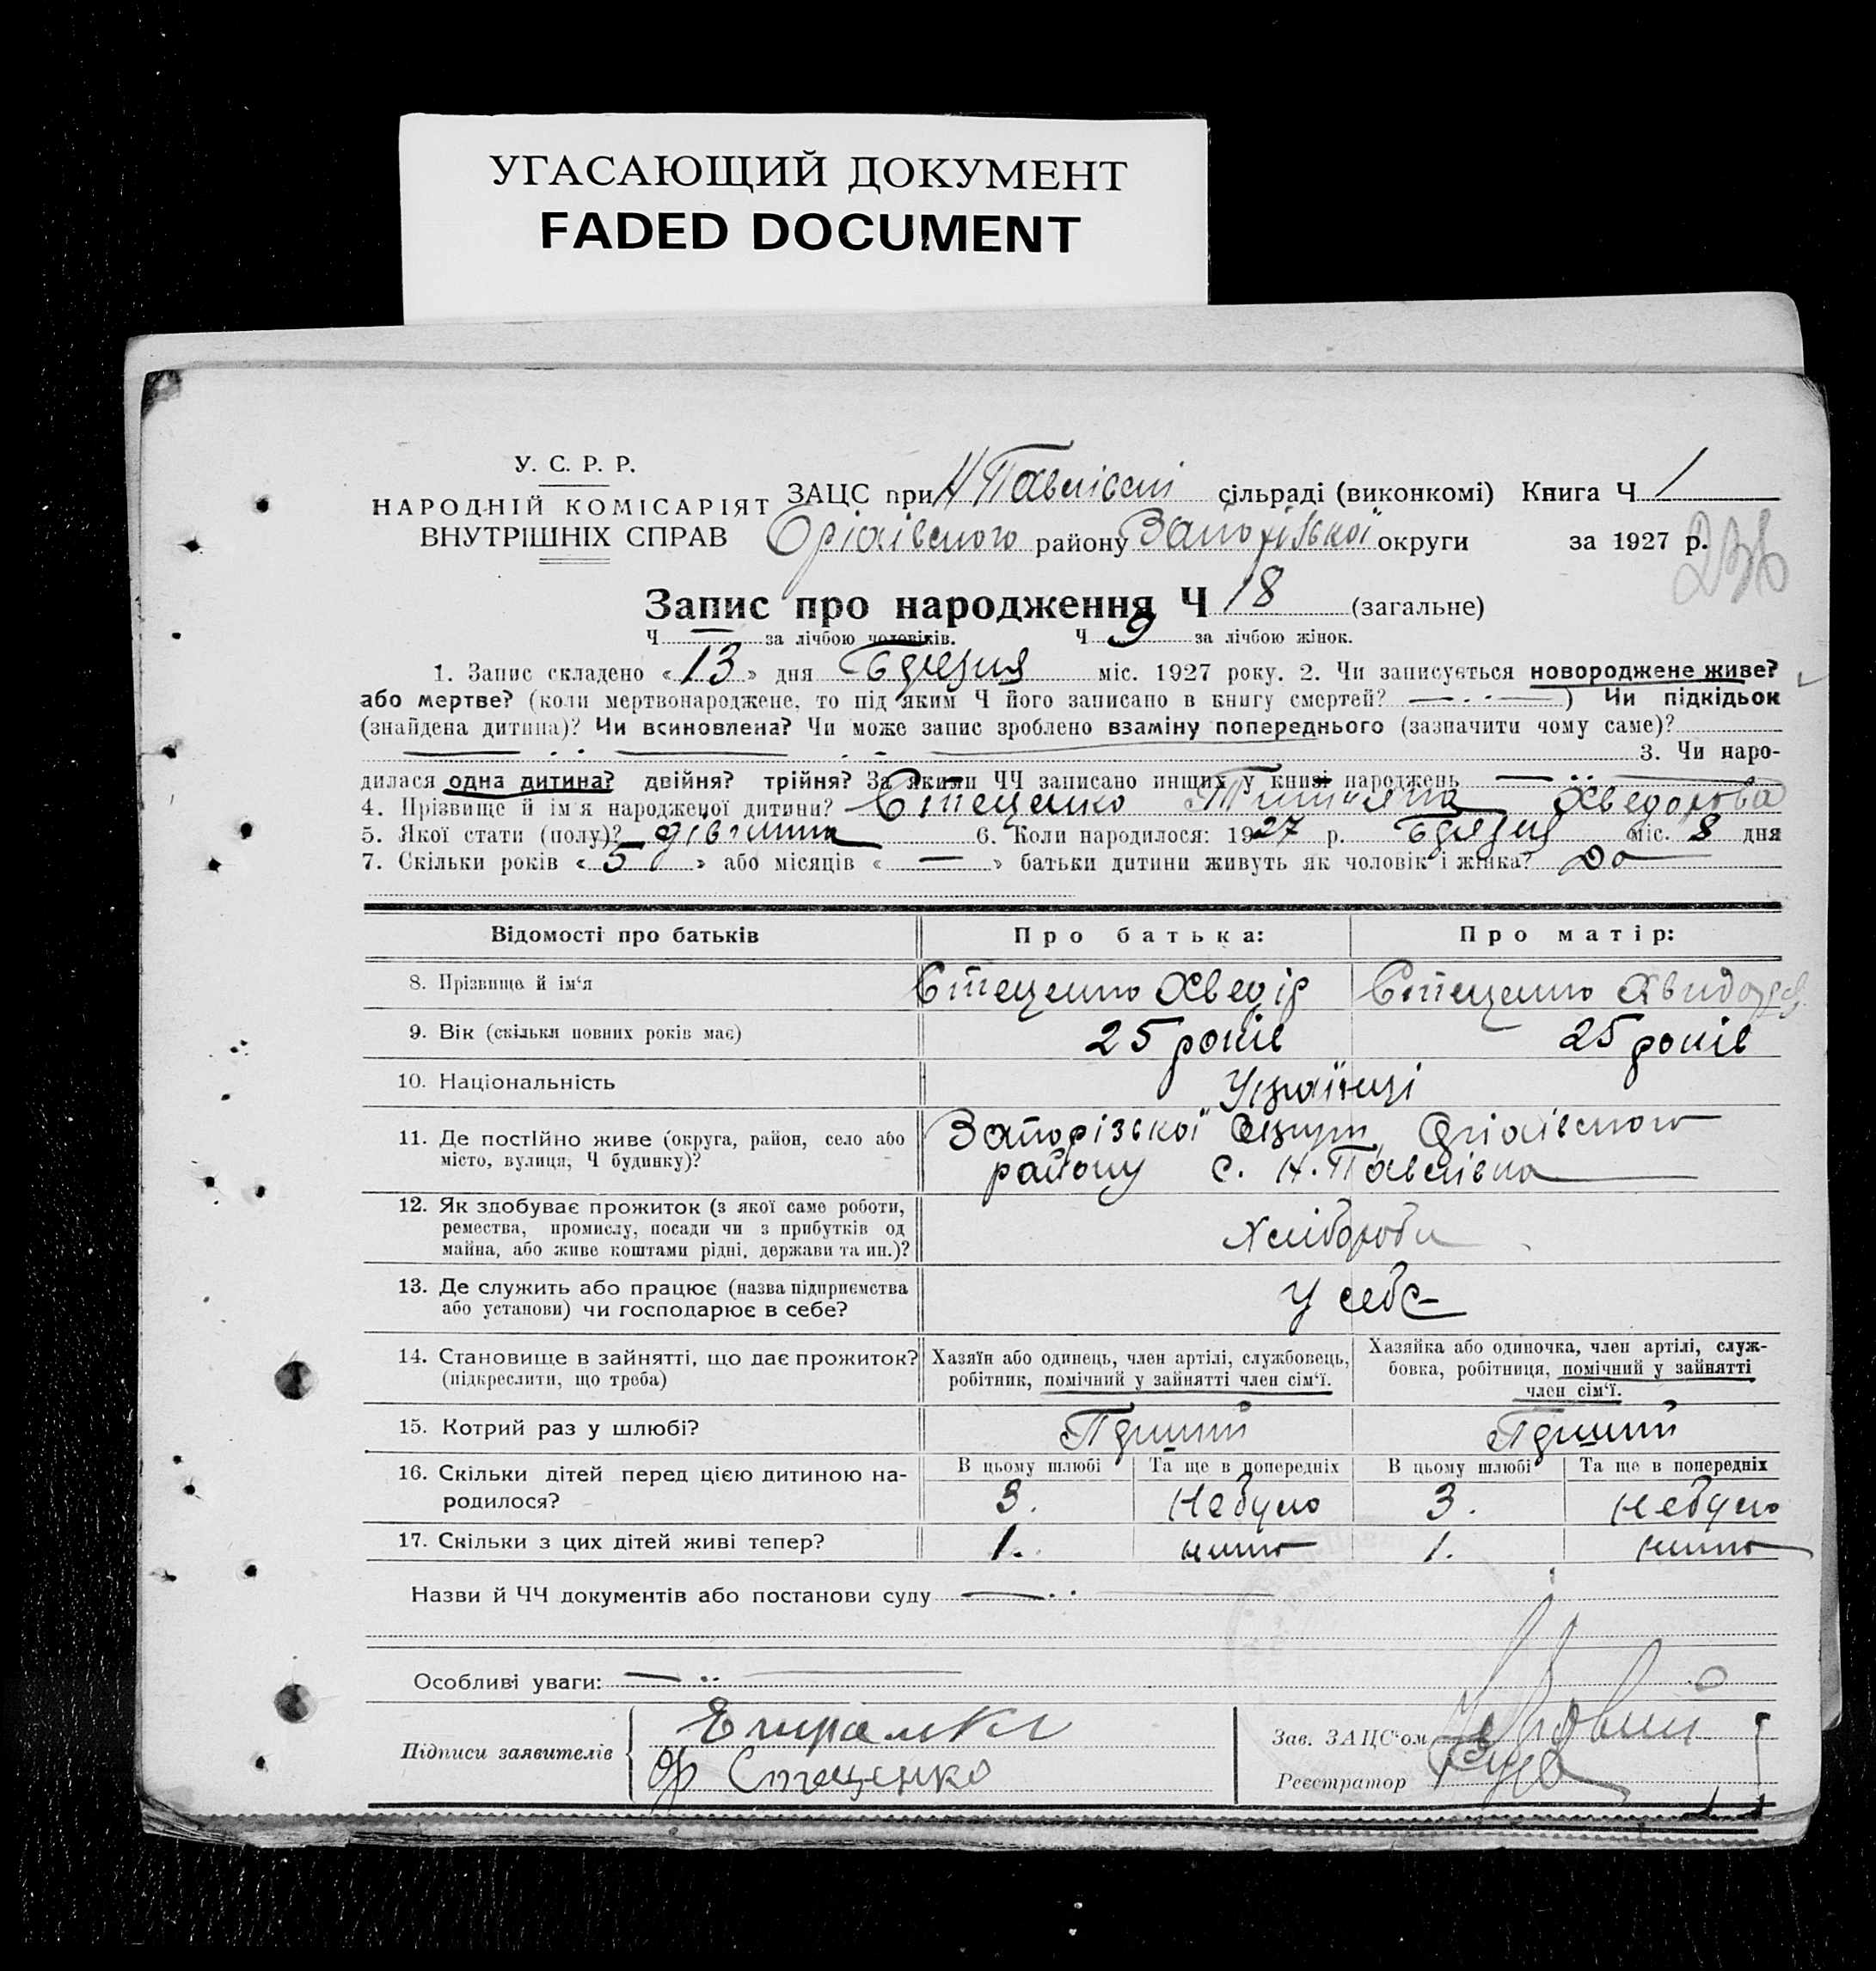 УГАСАЮЩИЙ ДОКУМЕНТ
FADED DOCUMENT
У. С. Р. Р.
НАРОДНІЙ КОМІСАРІЯТ
ВНУТРІШНІХ СПРАВ
ЗАЦС при Н Павлівсні сільраді (виконкомі) Книга Ч 1
Оріхівсного району Запоріської округи за 1927 р.
236
Запис про народження Ч 18 (загальне)
Ч — за лічбою чоловіків. Ч 9 за лічбою жінок.
1. Запис складено «13» дня Березня міс. 1927 року. 2. Чи записується новороджене живе?
або мертве? (коли мертвонароджене, то під яким Ч його записано в книгу смертей? — . · —) Чи підкідьок
(знайдена дитина)? Чи всиновлена? Чи може запис зроблено взаміну попереднього (зазначити чому саме)?
3. Чи наро-
дилася одна дитина? двійня? трійня? За якими ЧЧ записано инших у книзі народжень —
4. Прізвище й ім'я народженої дитини? Стеценко Хведорова
5. Якої стати (полу)? дівчина 6. Коли народилося: 1927 р. Березня міс. 8 дня
7. Скільки років «5» або місяців «—» батьки дитини живуть як чоловік і жінка? Да
Відомості про батьків
Про батька:
Про матір:
8. Прізвище й ім'я
Стеценко Хведір
Стеценко
9. Вік (скільки повних років має)
25 років
25 років
10. Національність
Українці
11. Де постійно живе (округа, район, село або
місто, вулиця, Ч будинку)?
Запорізської Округи, Оріхівсного
району с. Н. Павлівка
12. Як здобуває прожиток (з якої саме роботи,
ремества, промислу, посади чи з прибутків од
майна, або живе коштами рідні, держави та ин.)?
Хлібороби
13. Де служить або працює (назва підприємства
або установи) чи господарює в себе?
У себе
14. Становище в зайнятті, що дає прожиток?
(підкреслити, що треба)
Хазяїн або одинець, член артілі, службовець,
робітник, помічний у зайнятті член сім'ї.
Хазяйка або одиночка, член артілі, служ-
бовка, робітниця, помічний у зайнятті
член сім'ї.
15. Котрий раз у шлюбі?
Перший
Перший
16. Скільки дітей перед цією дитиною на-
родилося?
В цьому шлюбі
Та ще в попередніх
В цьому шлюбі
Та ще в попередніх
3.
Небуло
3.
Небуло
17. Скільки з цих дітей живі тепер?
1.
1.
Назви й ЧЧ документів або постанови суду
Особливі уваги:
Підписи заявителів
Ф Стеценко
Зав. ЗАЦС'ом
Реєстратор